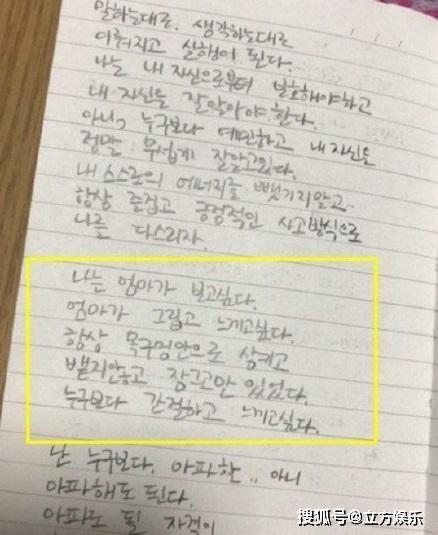 말하는대로. 생각하는대로
이뤄지고 실행이 된다.
나는 내 자신으로부터 보호해야하고
내 자신을 잘알아야한다.
아니, 누구보다 예민하고 내자신을
정말 무섭게 잘알고있다.
내 스스로의 에너지를 뺏기지말고..
항상 즐겁고 긍정적인 사고방식으로
나를 다스리자.
나는 엄마가 보고싶다.
엄마가 그립고 느끼고싶다.
항상 목구멍안으로 삼키고
뱉지안고 잠그고만 있었다.
누구보다 간절하고 느끼고싶다.
난 누구보다. 아파한.. 아니
아파해도 된다.
아파도 될 자격이
搜狐号@立方娱乐